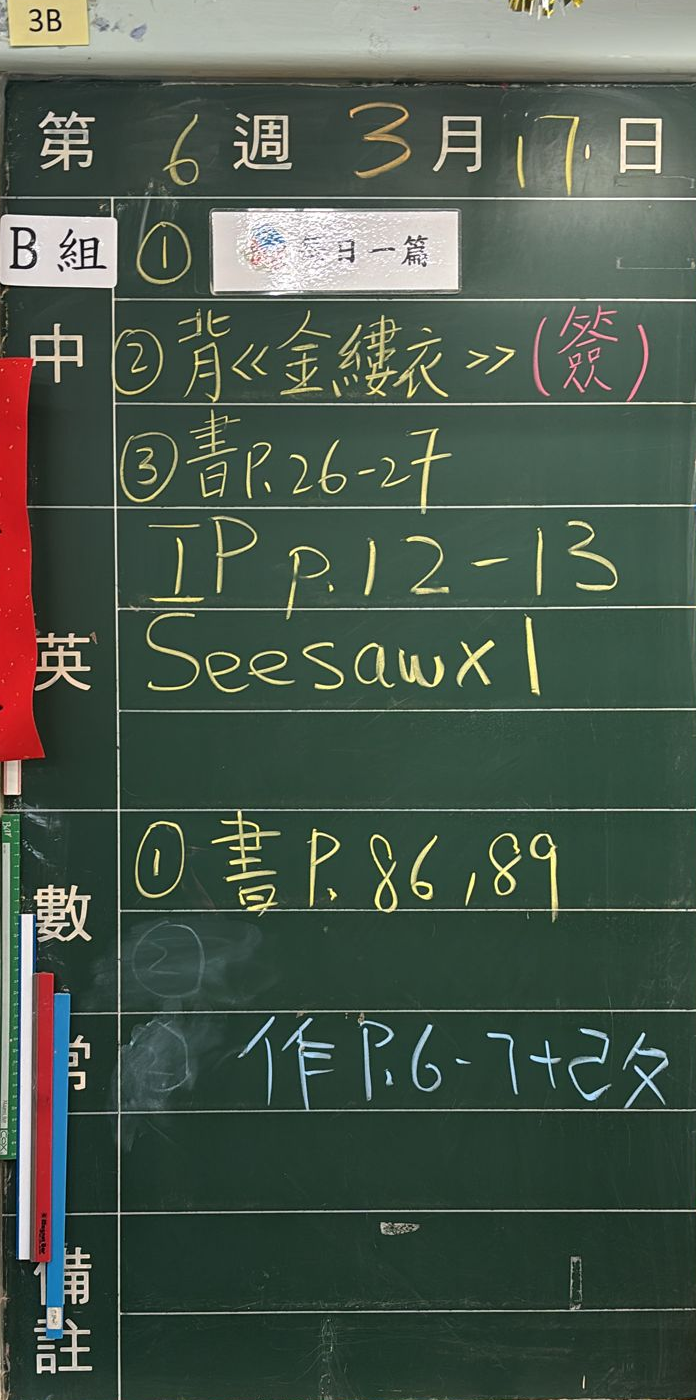 3B
第 6 週 3 月 17 日
B 組 ① 每日一篇
中 ② 背《金縷衣》(簽)
③ 書P.26-27
IP p.12-13
英 Seesaw x 1
數 ① 書P.86,89
②
常 作P.6-7+改
備註